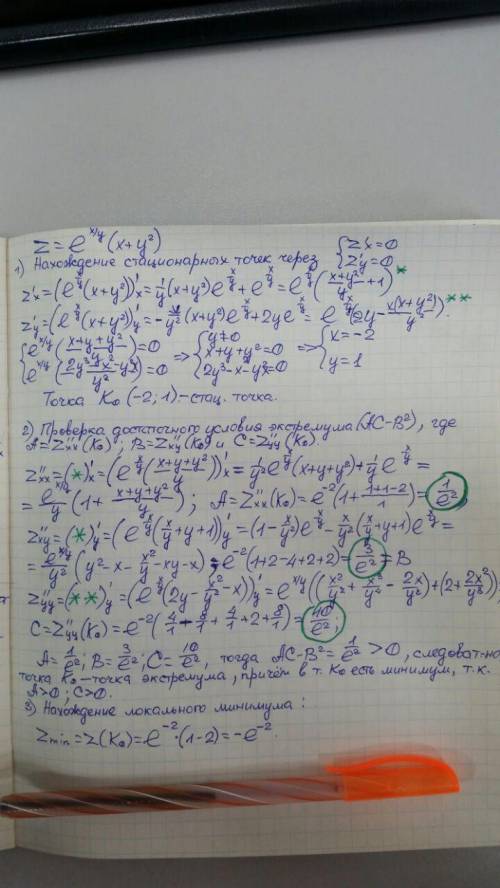 z = e^{x/y}(x+y²)
1) Нахождение стационарных точек через {z'x=0 z'y=0
z'x=(e^{x/y}(x+y²))'x = 1/y(x+y²)e^{x/y}+e^{x/y} = e^{x/y}((x+y²)/y+1)*
z'y=(e^{x/y}(x+y²))'y = -x/y²(x+y²)e^{x/y}+2ye^{x/y} = e^{x/y}(2y-x(x+y²)/y²)**.
{e^{x/y}((x+y+y²)/y)=0 ⇒ {y≠0 ⇒ {x=-2
x+y+y²=0
{e^{x/y}((2y³-x²-y²x)/y²)=0 2y³-x²-y²x=0 y=1
Точка K₀(-2;1)-стац. точка.
2) Проверка достаточного условия экстремума (AC-B²), где
A=z''xx(K₀); B=z''xy(K₀) и C=z''yy(K₀).
z''xx=(*)'x=(e^{x/y}((x+y+y²)/y))'x=1/y² e^{x/y}(x+y+y²)+1/y e^{x/y}=
=e^{x/y}/y(1+(x+y+y²)/y); A=z''xx(K₀)=e^{-2}(1+(1+1-2)/1)=1/e²
z''xy=(*)'y=(e^{x/y}(x/y+y+1))'y=(1-x/y²)e^{x/y}-x/y²(x/y+y+1)e^{x/y}=
=e^{x/y}/y²(y²-x-x²/y-xy-x)=e^{-2}(1+2-4+2+2)=3/e²=B
z''yy=(**)'y=(e^{x/y}(2y-x²/y²-x))'y=e^{x/y}((x³/y⁴+x²/y²-2x/y)+(2+2x²/y³)).
C=z''yy(K₀)=e^{-2}(4/1-8/1+4/1+2+8/1)=10/e²;
A=1/e²; B=3/e²; C=10/e², тогда AC-B²=1/e²>0, следоват-но
точка K₀-точка экстремума, причём в т. K₀ есть минимум, т.к.
A>0; C>0.
3) Нахождение локального минимума:
Zmin=Z(K₀)=e^{-2}·(1-2)=-e^{-2}.